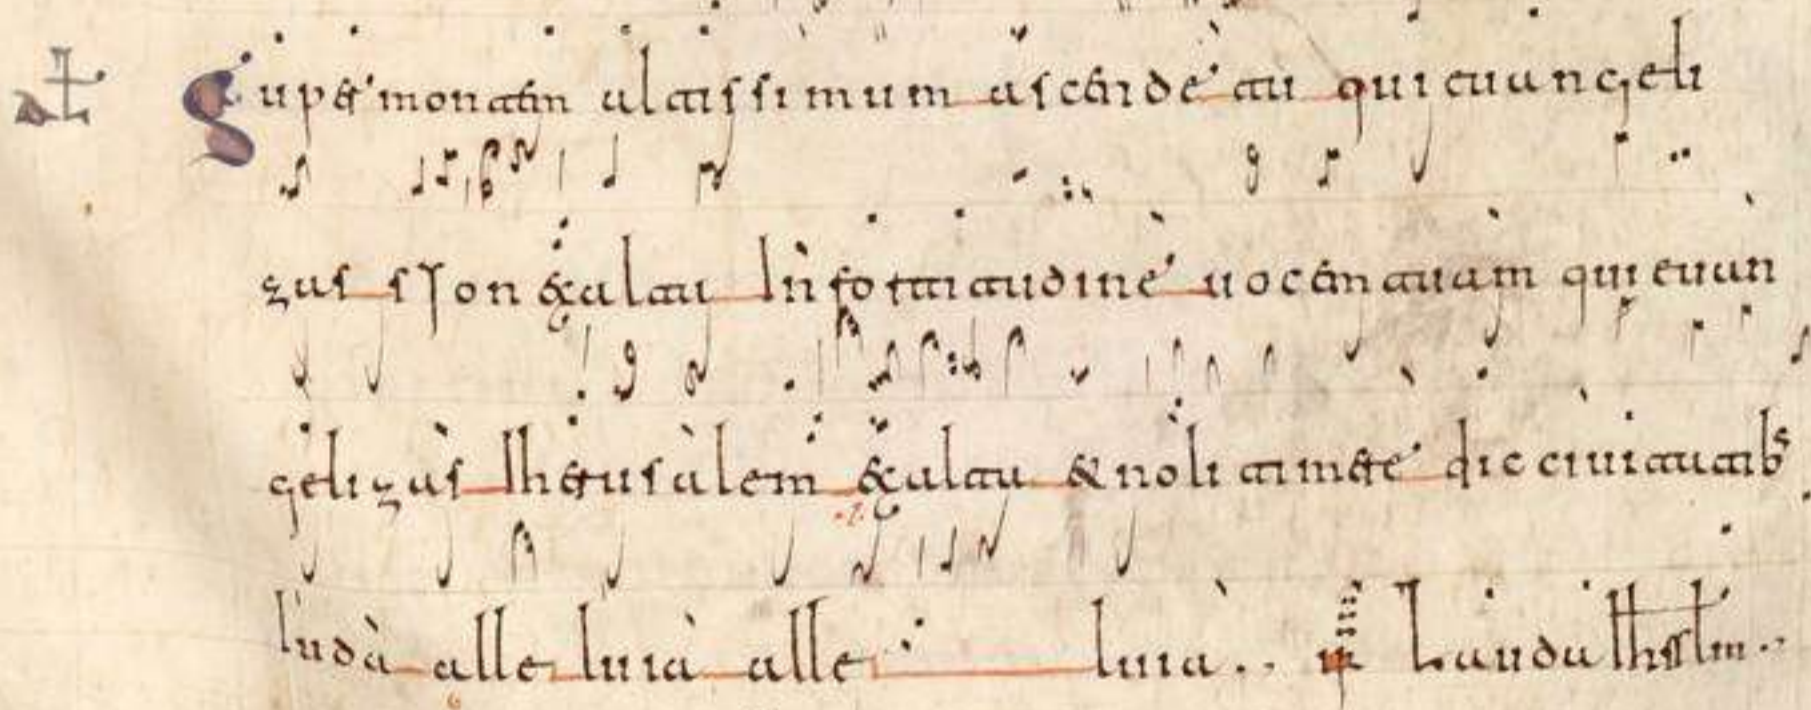 At Super montem altissimum ascende tu qui evangeli
zas syon exalta In fortitudine vocem tuam qui evan
gelizas Iherusalem exalta & noli timere dic civitatibs
Iuda alleluia alle luia.. ps Lauda Ihrslm..